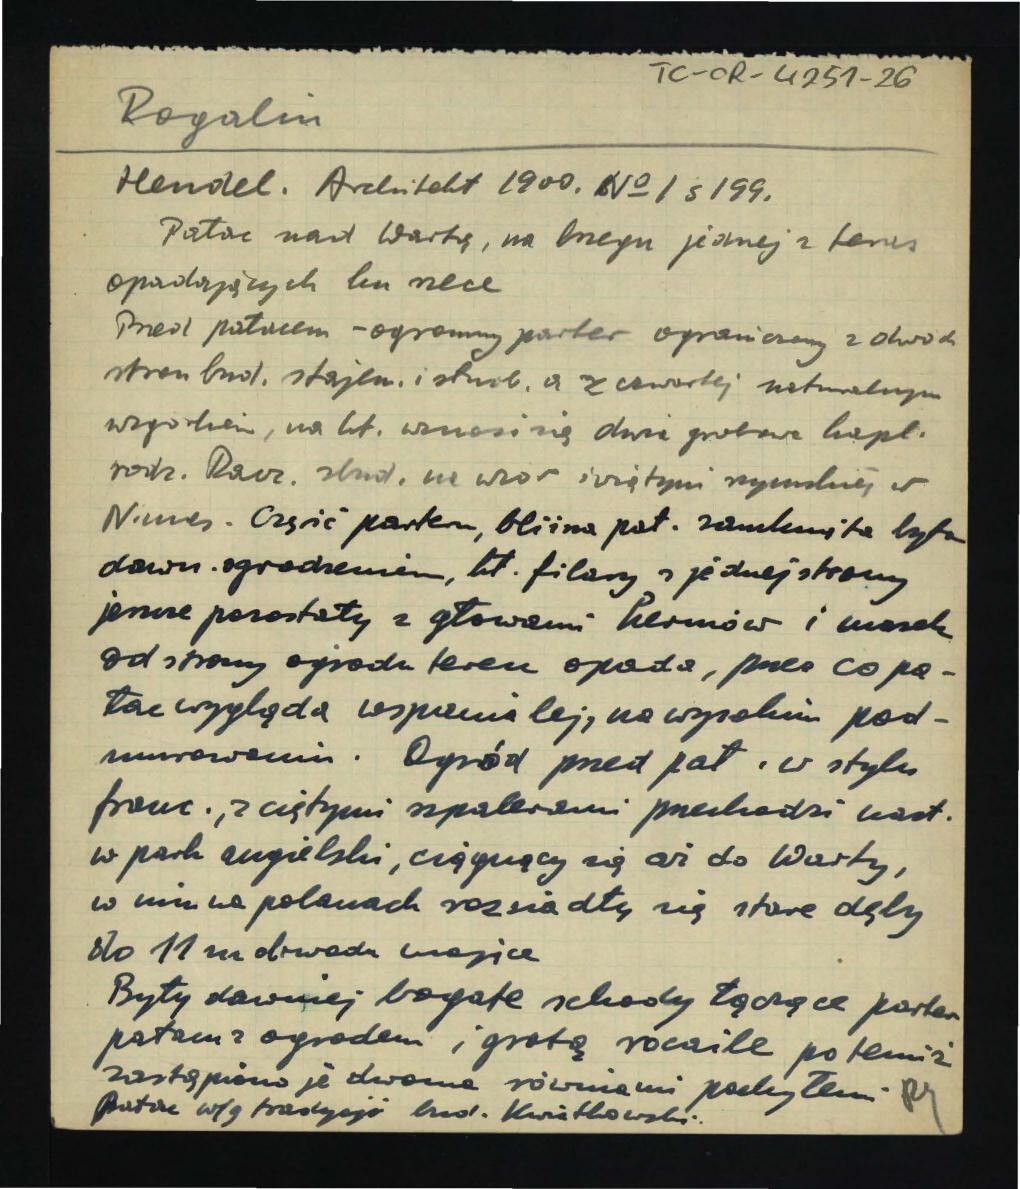 TC-OR-4251-26
Rogalin
Hendel. Architekt 1900. No 1 s 199.
Pałac nad Wartą, na brzegu jednej z teras
opadających ku rzece
Przed pałacem - ogromny parter ograniczony z dwóch
stron bud. stajen. i służb. a z czwartej naturalnym
wzgórkiem, na kt. wznosi się dwie grobowe kapl.
rodz. Racz. zbud. na wzór świątyni rzymskiej w
Nimes. Część parteru, bliższa pał. zamknięta była
dawn. ogrodzeniem, kt. filary z jednej strony
jeszcze pozostały z głowami Hermów i masek
od strony ogrodu teren opada, przez co pa-
łac wygląda wspanialej, na wysokim pod-
murowaniu. Ogród przed pał. w stylu
franc., z ciętymi szpalerami przechodzi nast.
w park angielski, ciągnący się aż do Warty,
w nim na polanach rozsiadły się stare dęby
do 11 m obwodu mające
Były dawniej bogate schody łączące parter
pałacu z ogrodem i grotą rocaille potem zaś
zastąpiono je dwoma równiami pochyłemi.
Pałac w/g tradycji bud. Kwiatkowski.